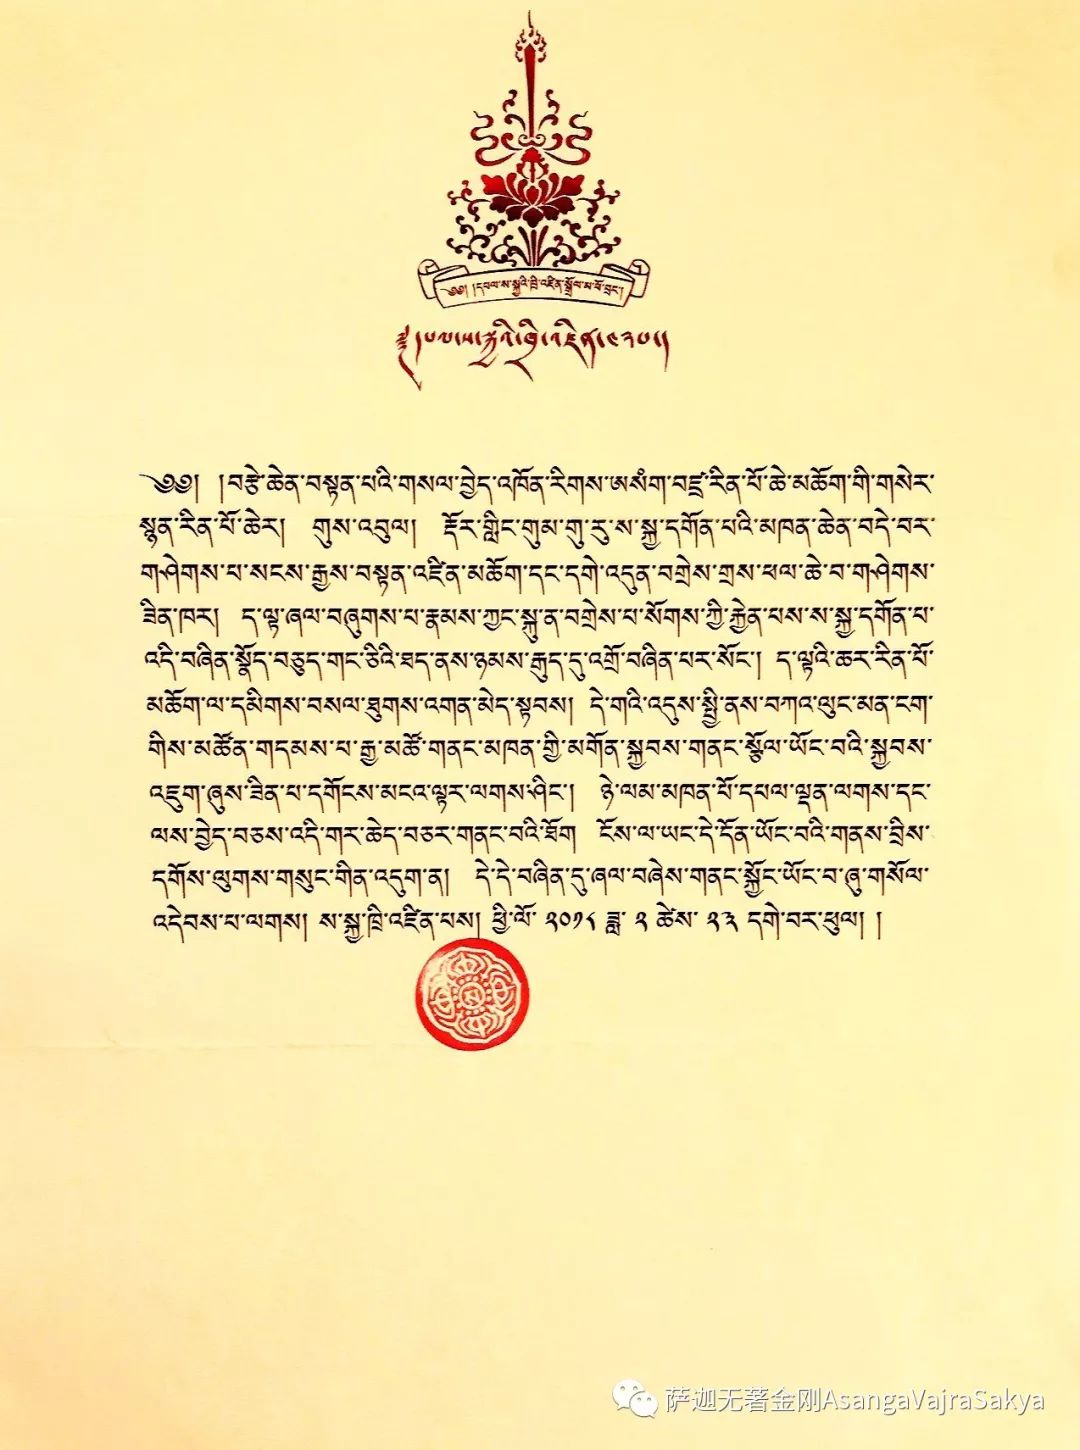 ༄༅། །དཔལ་ས་སྐྱའི་ཁྲི་འཛིན་སྒྲོལ་མ་ཕོ་བྲང་།
༄༅། །བརྩེ་ཆེན་བསྟན་པའི་གསལ་བྱེད་འཁོན་རིགས་ཨ་སཾག་བཛྲ་རིན་པོ་ཆེ་མཆོག་གི་གསེར་
སྙན་རིན་པོ་ཆེར། གུས་འབུལ། རྡོར་གླིང་གུམ་གུ་རུ་ས་སྐྱ་དགོན་པའི་མཁན་ཆེན་བདེ་བར་
གཤེགས་པ་སངས་རྒྱས་བསྟན་འཛིན་མཆོག་དང་དགེ་འདུན་བགྲེས་གྲས་ཕལ་ཆེ་བ་གཤེགས་
ཟིན་ཁར། ད་ལྟ་ཞལ་བཞུགས་པ་རྣམས་ཀྱང་སྐུ་ན་བགྲེས་པ་སོགས་ཀྱི་རྐྱེན་པས་ས་སྐྱ་དགོན་པ་
འདི་བཞིན་སྣོད་བཅུད་གང་ཅིའི་ཐད་ནས་ཉམས་རྒུད་དུ་འགྲོ་བཞིན་པར་སོང་། ད་ལྟའི་ཆར་རིན་པོ་
མཆོག་ལ་དམིགས་བསལ་ཐུགས་འགན་མེད་སྟབས། དེ་གའི་འདུས་སྤྱི་ནས་བཀའ་ལུང་མན་ངག་
གིས་མཚོན་གདམས་པ་རྒྱ་མཚོ་གནང་མཁན་གྱི་མགོན་སྐྱབས་གནང་སྩོལ་ཡོང་བའི་སྐྱབས་
འཇུག་ཞུས་ཟིན་པ་དགོངས་མངའ་ལྟར་ལགས་ཤིང་། ཉེ་ལམ་མཁན་པོ་དཔལ་ལྡན་ལགས་དང་
ལས་བྱེད་བཅས་འདི་གར་ཆེད་བཅར་གནང་བའི་ཐོག ངོས་ལ་ཡང་དེ་དོན་ཡོང་བའི་གནས་བྲིས་
དགོས་ལུགས་གསུང་གིན་འདུག་ན། དེ་དེ་བཞིན་དུ་ཞལ་བཞེས་གནང་སྐྱོང་ཡོང་བ་ཞུ་གསོལ་
འདེབས་པ་ལགས། ས་སྐྱ་ཁྲི་འཛིན་པས། ཕྱི་ལོ་ ༢༠༡༨ ཟླ་ ༢ ཚེས་ ༢༣ དགེ་བར་ཕུལ། །
萨迦无著金刚AsangaVajraSakya